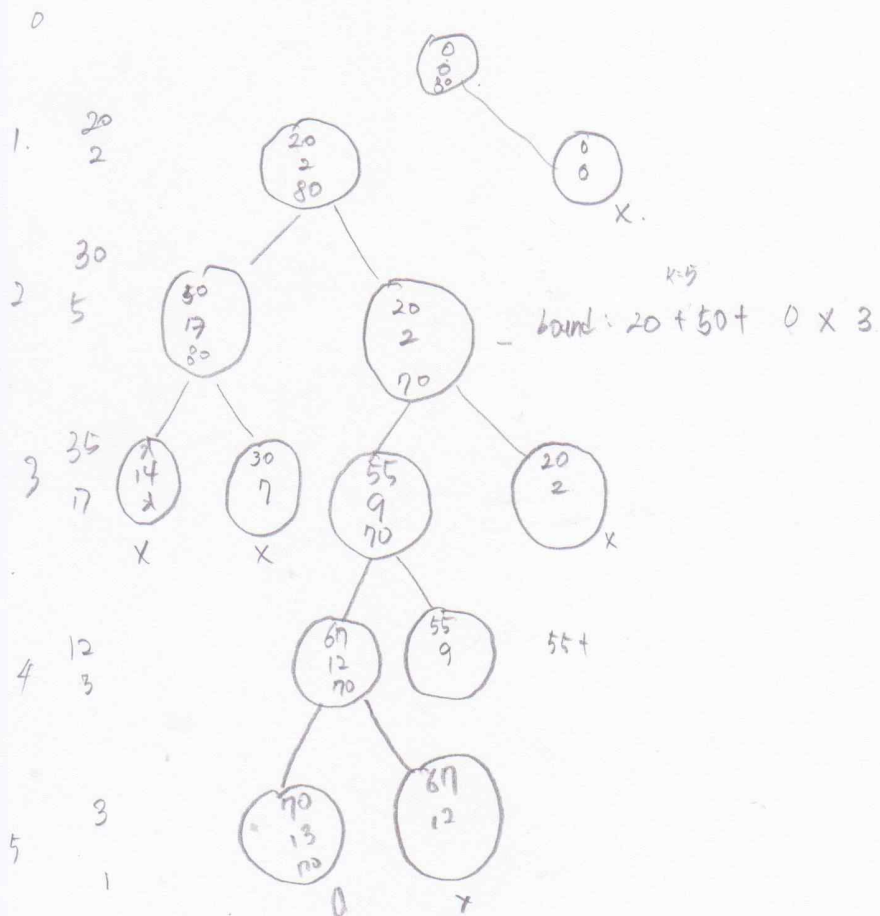 0
0
0
80
1.
20
2
20
2
80
0
0
X.
2
30
5
50
17
80
20
2
70
k=5
- bound: 20 + 50 + 0 X 3
3
35
17
14
X
30
7
X
55
9
70
20
2
X
4
12
3
67
12
70
55
9
55+
5
3
1
70
13
70
0
67
12
X